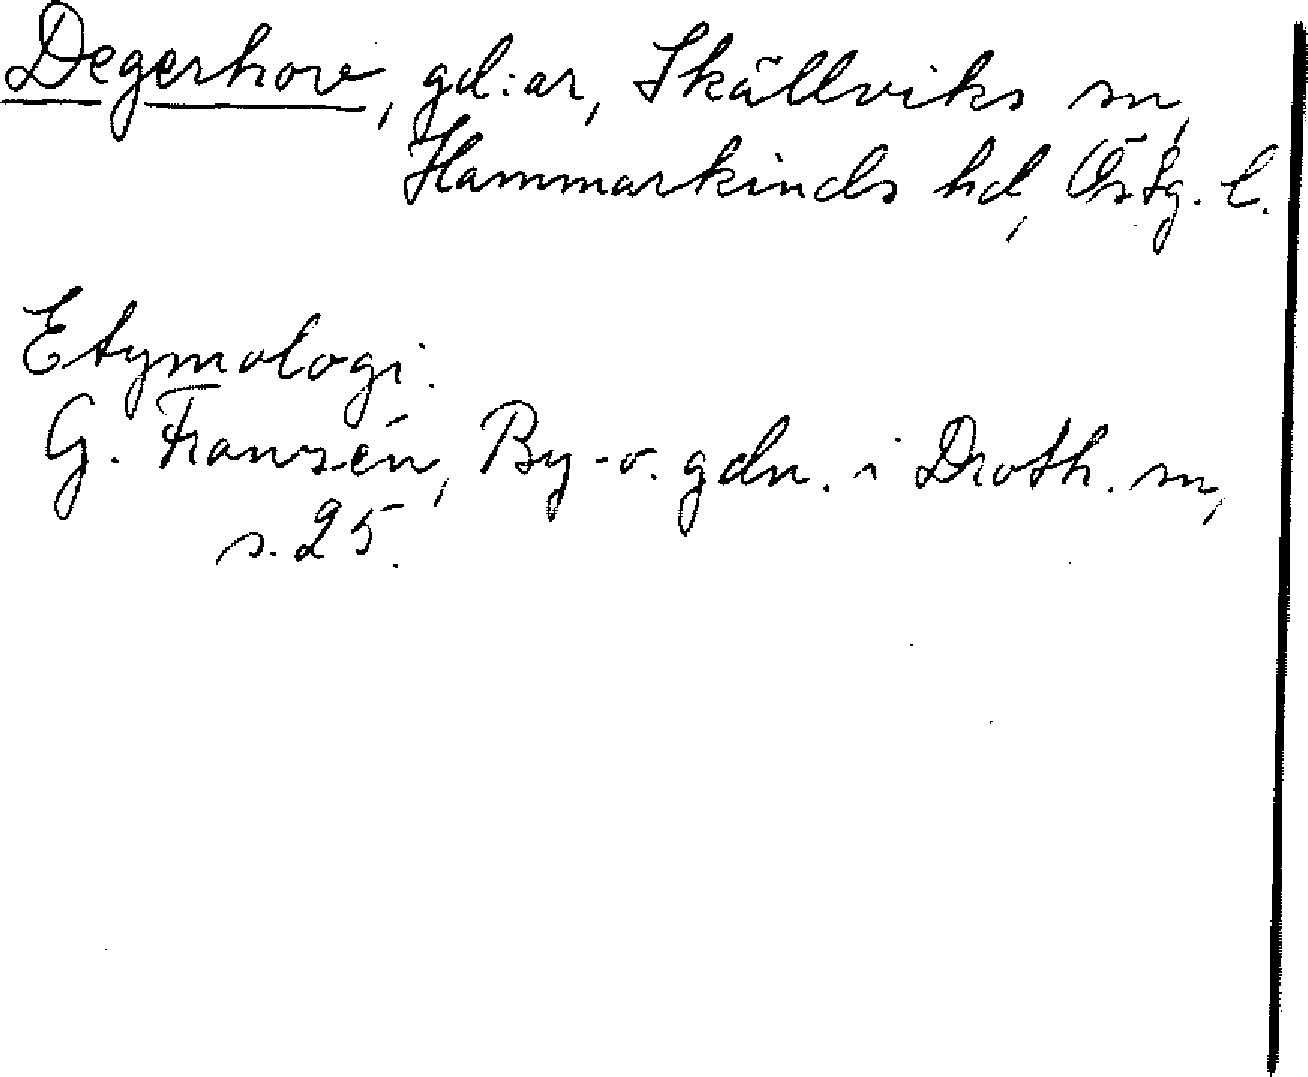 Degerhove, gd:ar, Skällviks sn,
Hammarkinds hd, Östg. l.
Etymologi.
G. Franzén, By- o. gdn. i Droth. sn,
s. 25.